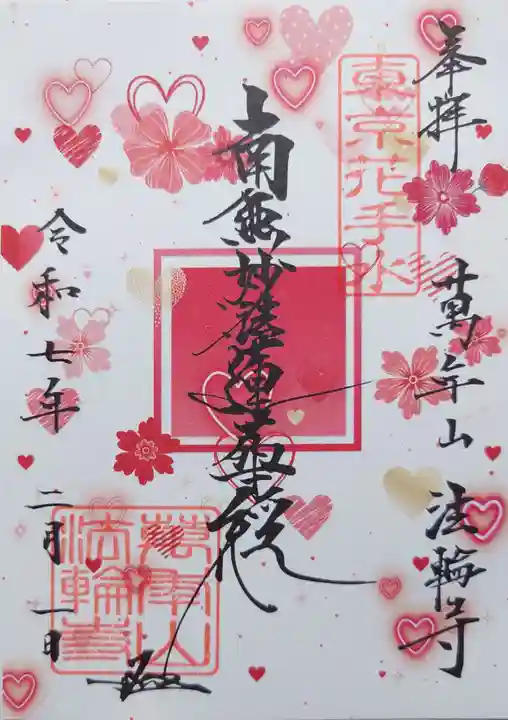 奉拝
東京花手水
萬年山 法輪寺
南無妙法蓮華経
令和七年
二月一日
萬年山
法輪寺